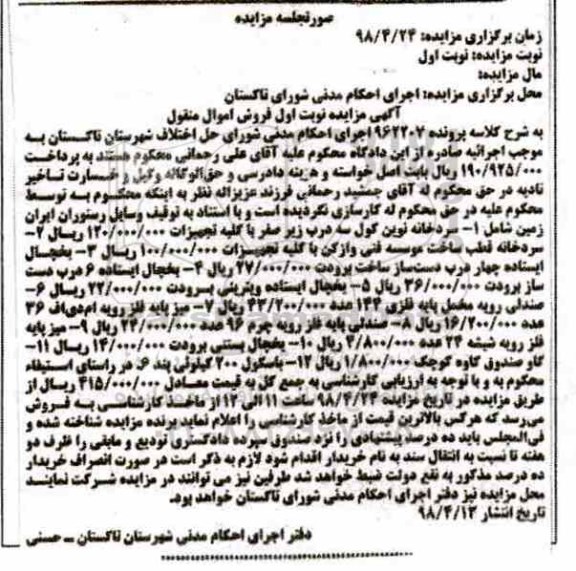 صورتجلسه مزایده
زمان برگزاری مزایده: ۹۸/۴/۲۴
نوبت مزایده: نوبت اول
مال مزایده:
محل برگزاری مزایده: اجرای احکام مدنی شورای تاکستان
آگهی مزایده نوبت اول فروش اموال منقول
به شرح کلاسه پرونده ۹۶۲۲۰۷ اجرای احکام مدنی شورای حل اختلاف شهرستان تاکستان به
موجب اجرائیه صادره از این دادگاه محکوم علیه آقای علی رحمانی محکوم هستند به پرداخت
۱۹۰/۹۲۵/۰۰۰ ریال بابت اصل خواسته و هزینه دادرسی و حق‌الوکاله وکیل و خسارت تاخیر
تادیه در حق محکوم له آقای جمشید رحمانی فرزند عزیزاله نظر به اینکه محکوم به توسط
محکوم علیه در حق محکوم له کارسازی نگردیده است و با استناد به توقیف وسایل رستوران ایران
زمین شامل ۱- سردخانه نوین کول سه درب زیر صفر با کلیه تجهیزات ۱۲۰/۰۰۰/۰۰۰ ریال ۲-
سردخانه قطب ساخت موسسه فنی وازکن با کلیه تجهیزات ۱۰۰/۰۰۰/۰۰۰ ریال ۳- یخچال
ایستاده چهار درب دست‌ساز ساخت برودت ۲۷/۰۰۰/۰۰۰ ریال ۴- یخچال ایستاده ۶ درب دست
ساز برودت ۳۶/۰۰۰/۰۰۰ ریال ۵- یخچال ایستاده ویترینی برودت ۲۲/۰۰۰/۰۰۰ ریال ۶-
صندلی رویه مخمل پایه فلزی ۱۴۴ عدد ۴۳/۲۰۰/۰۰۰ ریال ۷- میز پایه فلز رویه ام‌دی‌اف ۳۶
عدد ۱۶/۲۰۰/۰۰۰ ریال ۸- صندلی پایه فلز رویه چرم ۹۶ عدد ۲۴/۰۰۰/۰۰۰ ریال ۹- میز پایه
فلز رویه شیشه ۲۴ عدد ۴/۸۰۰/۰۰۰ ریال ۱۰- یخچال بستنی برودت ۱۴/۰۰۰/۰۰۰ ریال ۱۱-
گاو صندوق گاوه کوچک ۱/۸۰۰/۰۰۰ ریال ۱۲- باسکول ۲۰۰ کیلوئی پند ۶. در راستای استیفاء
محکوم به و با توجه به ارزیابی کارشناسی به جمع کل به قیمت معادل ۴۱۵/۰۰۰/۰۰۰ ریال از
طریق مزایده در تاریخ مزایده ۹۸/۴/۲۴ ساعت ۱۱ الی ۱۲ از ماخذ کارشناسی به فروش
می‌رسد که هرکس بالاترین قیمت از ماخذ کارشناسی را اعلام نماید برنده مزایده شناخته شده و
فی‌المجلس باید ده درصد پیشنهادی را نزد صندوق سپرده دادگستری تودیع و مابقی را ظرف دو
هفته تا نسبت به انتقال سند به نام خریدار اقدام شود لازم به ذکر است در صورت انصراف خریدار
ده درصد مذکور به نفع دولت ضبط خواهد شد طرفین نیز می توانند در مزایده شرکت نمایند
محل مزایده نیز دفتر اجرای احکام مدنی شورای تاکستان خواهد بود.
تاریخ انتشار ۹۸/۴/۱۳
دفتر اجرای احکام مدنی شهرستان تاکستان ــ حسنی